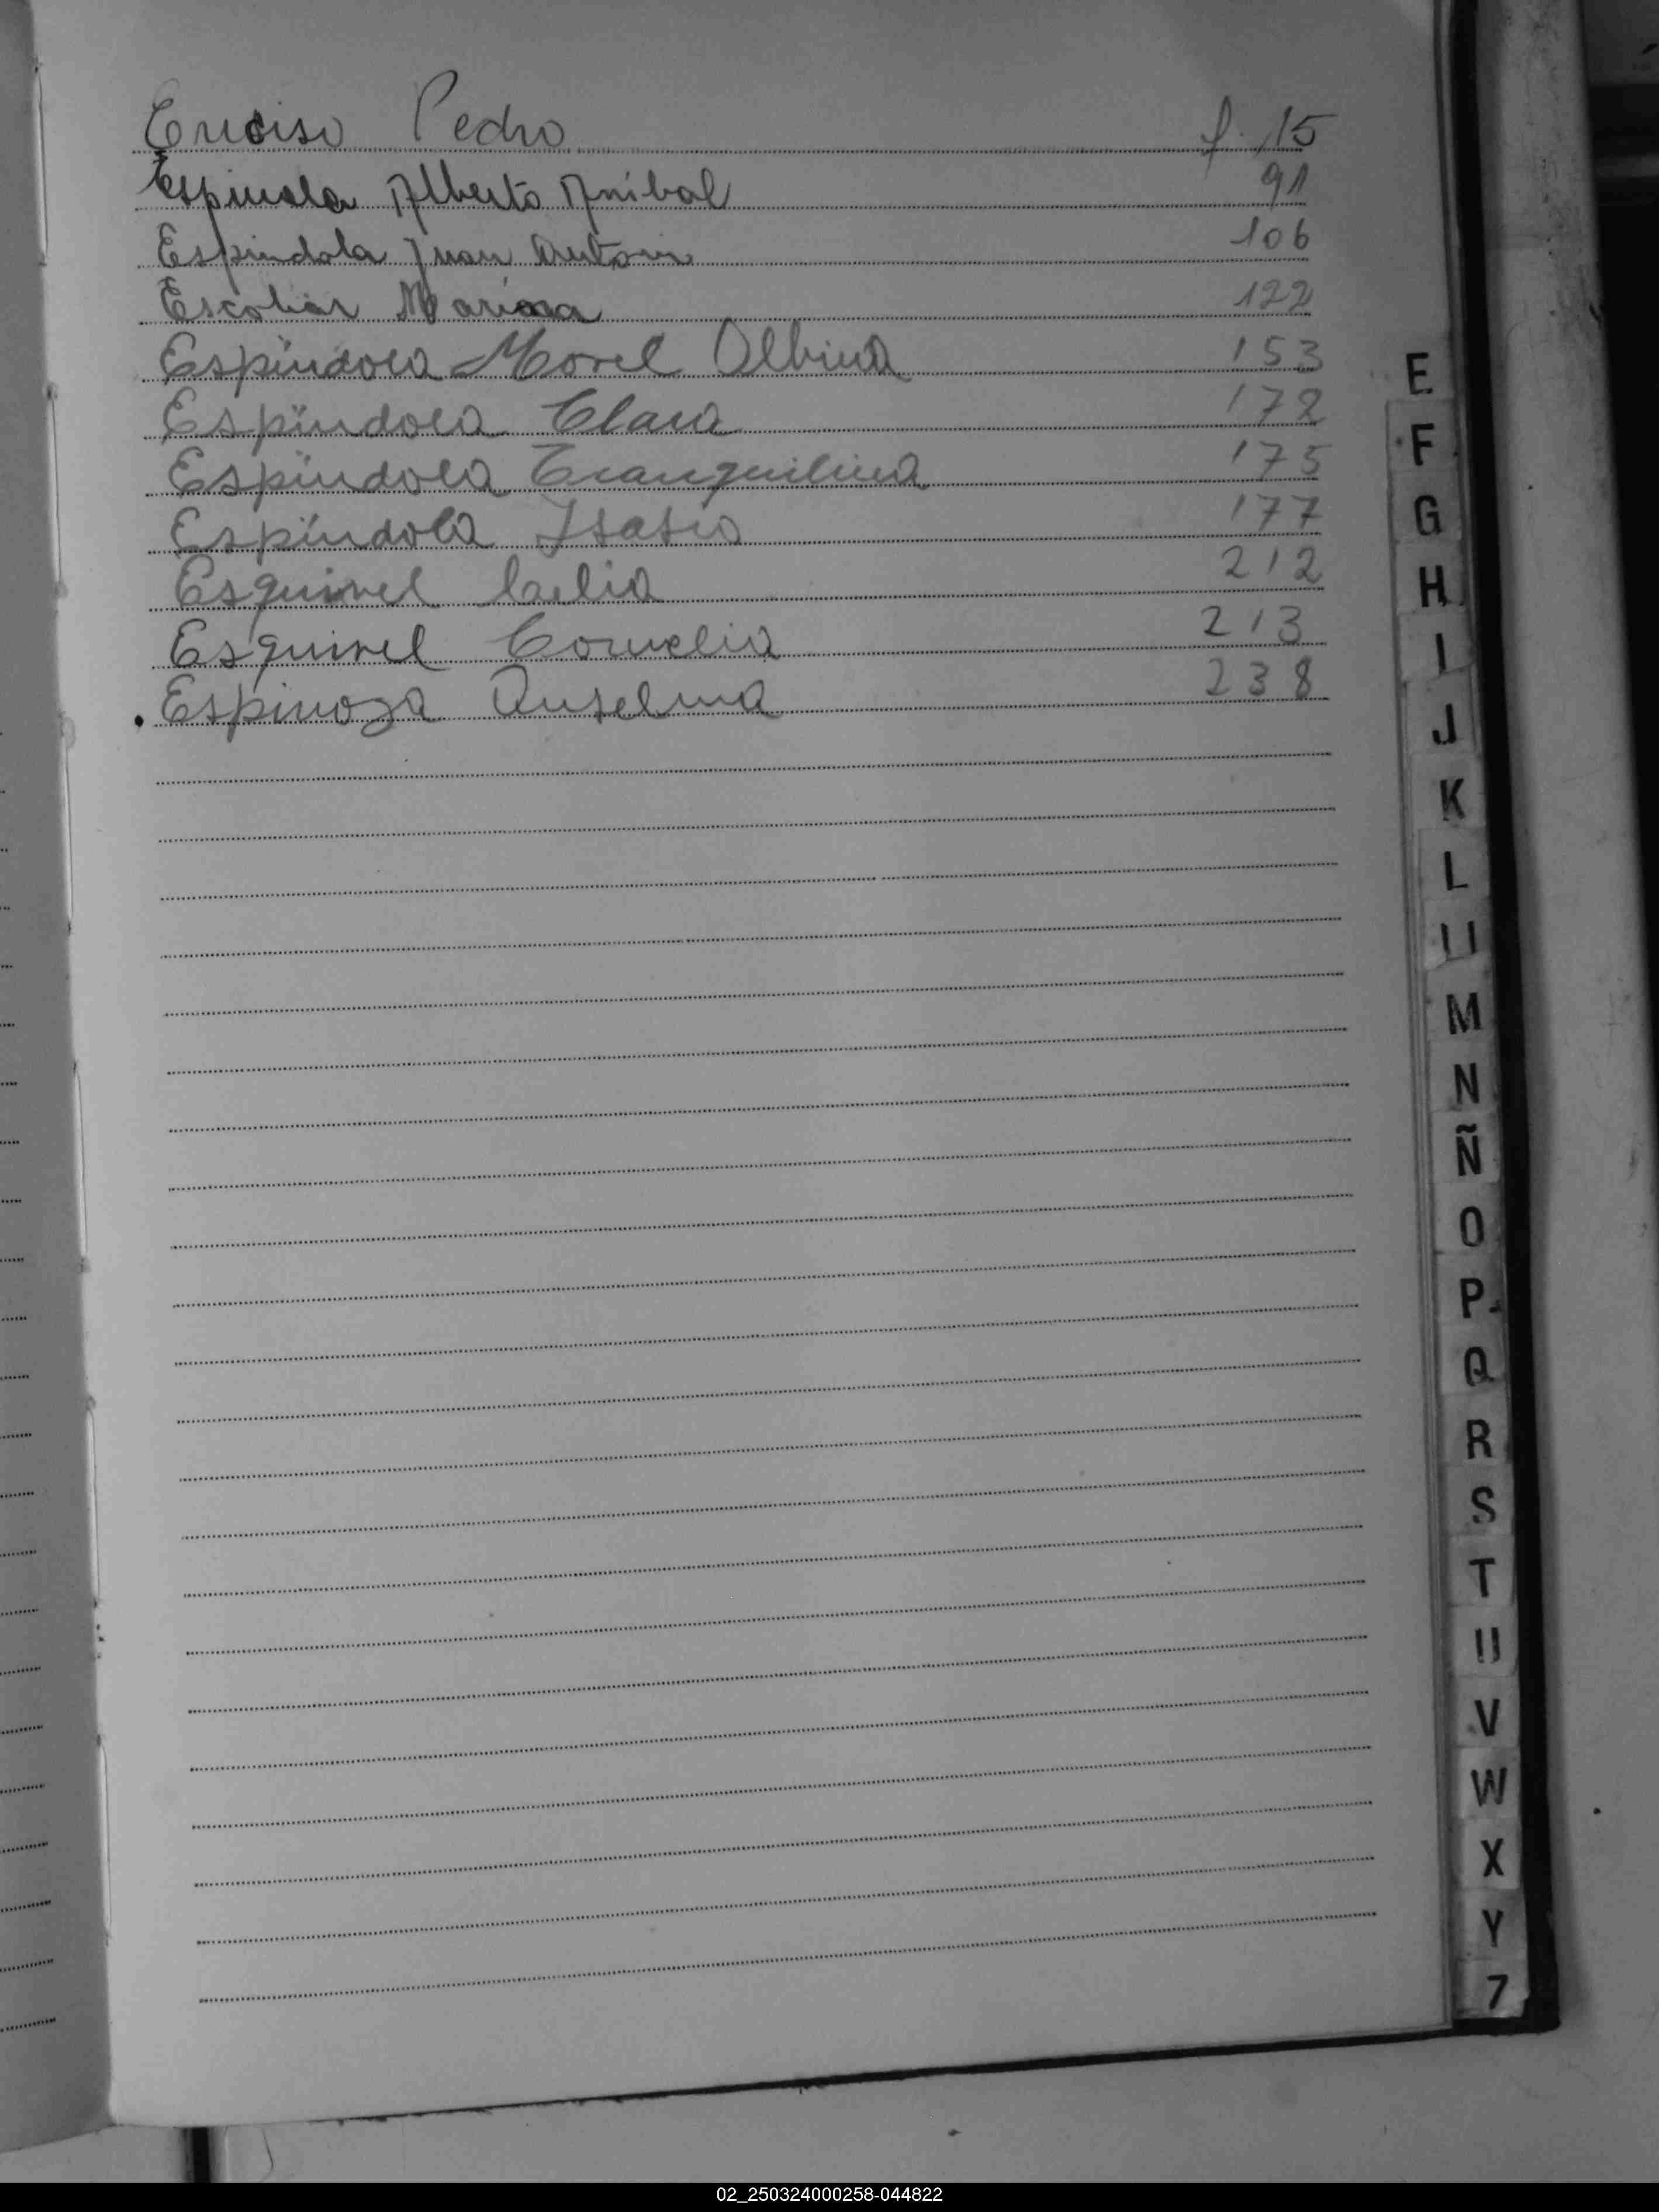 Enciso Pedro f. 15
Espinola Alberto Anibal 91
Espindola Juan Anton 106
Escobar Mariana 122
Espíndola Morel Albina 153
Espíndola Clara 172
Espíndola Tranquilina 175
Espíndola 177
Esquivel Celia 212
Esquivel Cornelia 213
Espinoza Anselma 238
E
F
G
H
I
J
K
L
Ll
M
N
Ñ
O
P
Q
R
S
T
U
V
W
X
Y
Z
02_250324000258-044822